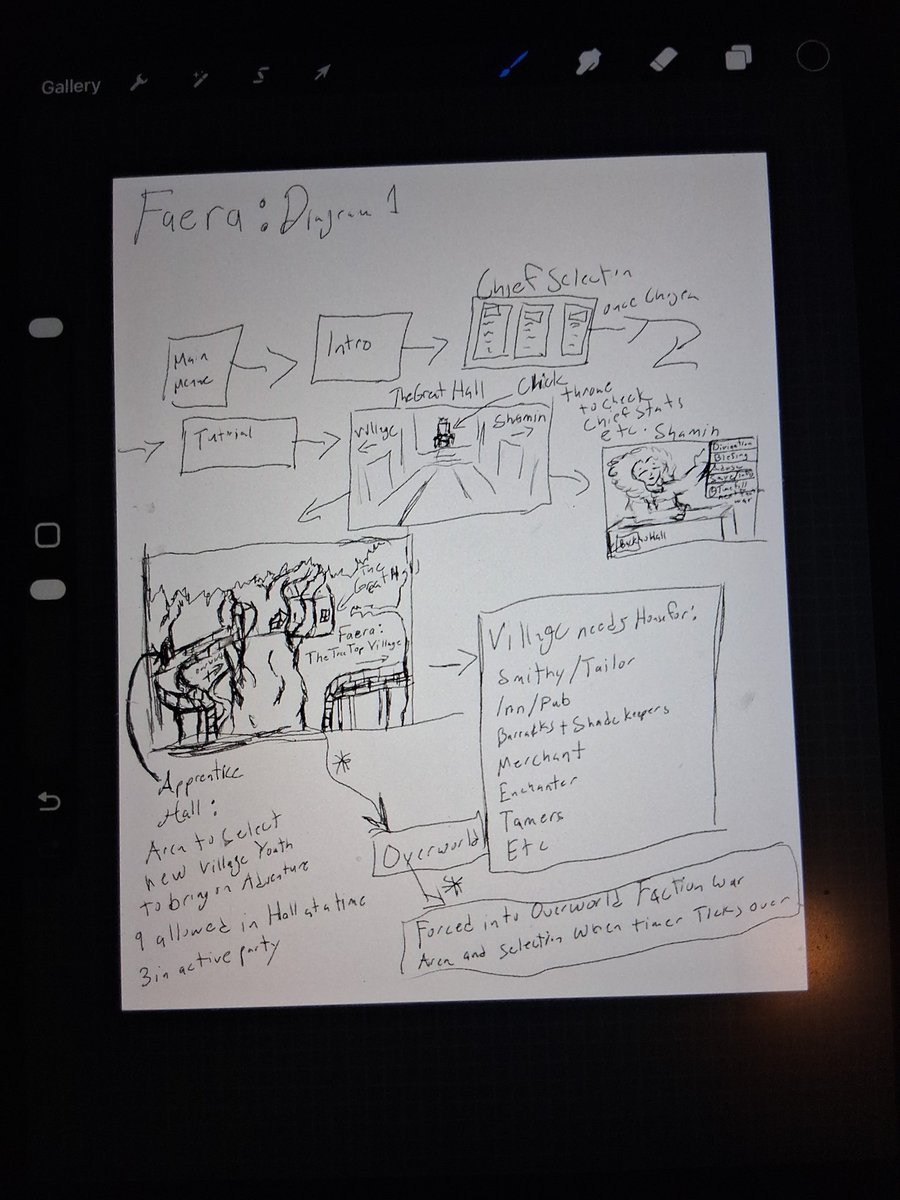 Gallery
Faera: Diagram 1
Chief Selectin
once Chosen
Main
Menue
Intro
The Great Hall
Click
throne
to check
Chief Stats
etc.
Tutrial
Village
Shamin
Shamin
Divination
Blessing
Save/
Time till
war
Hall
The
Great Hall
Faera:
The Tree Top Village
Village needs House for:
Smithy/Tailor
Inn/Pub
Barracks + Shade keepers
Merchant
Enchanter
Tamers
Etc
Apprentice
Hall:
Area to select
new Village Youth
to bring on Adventure
9 allowed in Hall at a time
3 in active party
*
Overworld
*
Forced into Overworld Faction War
Area and Selection When timer Ticks over